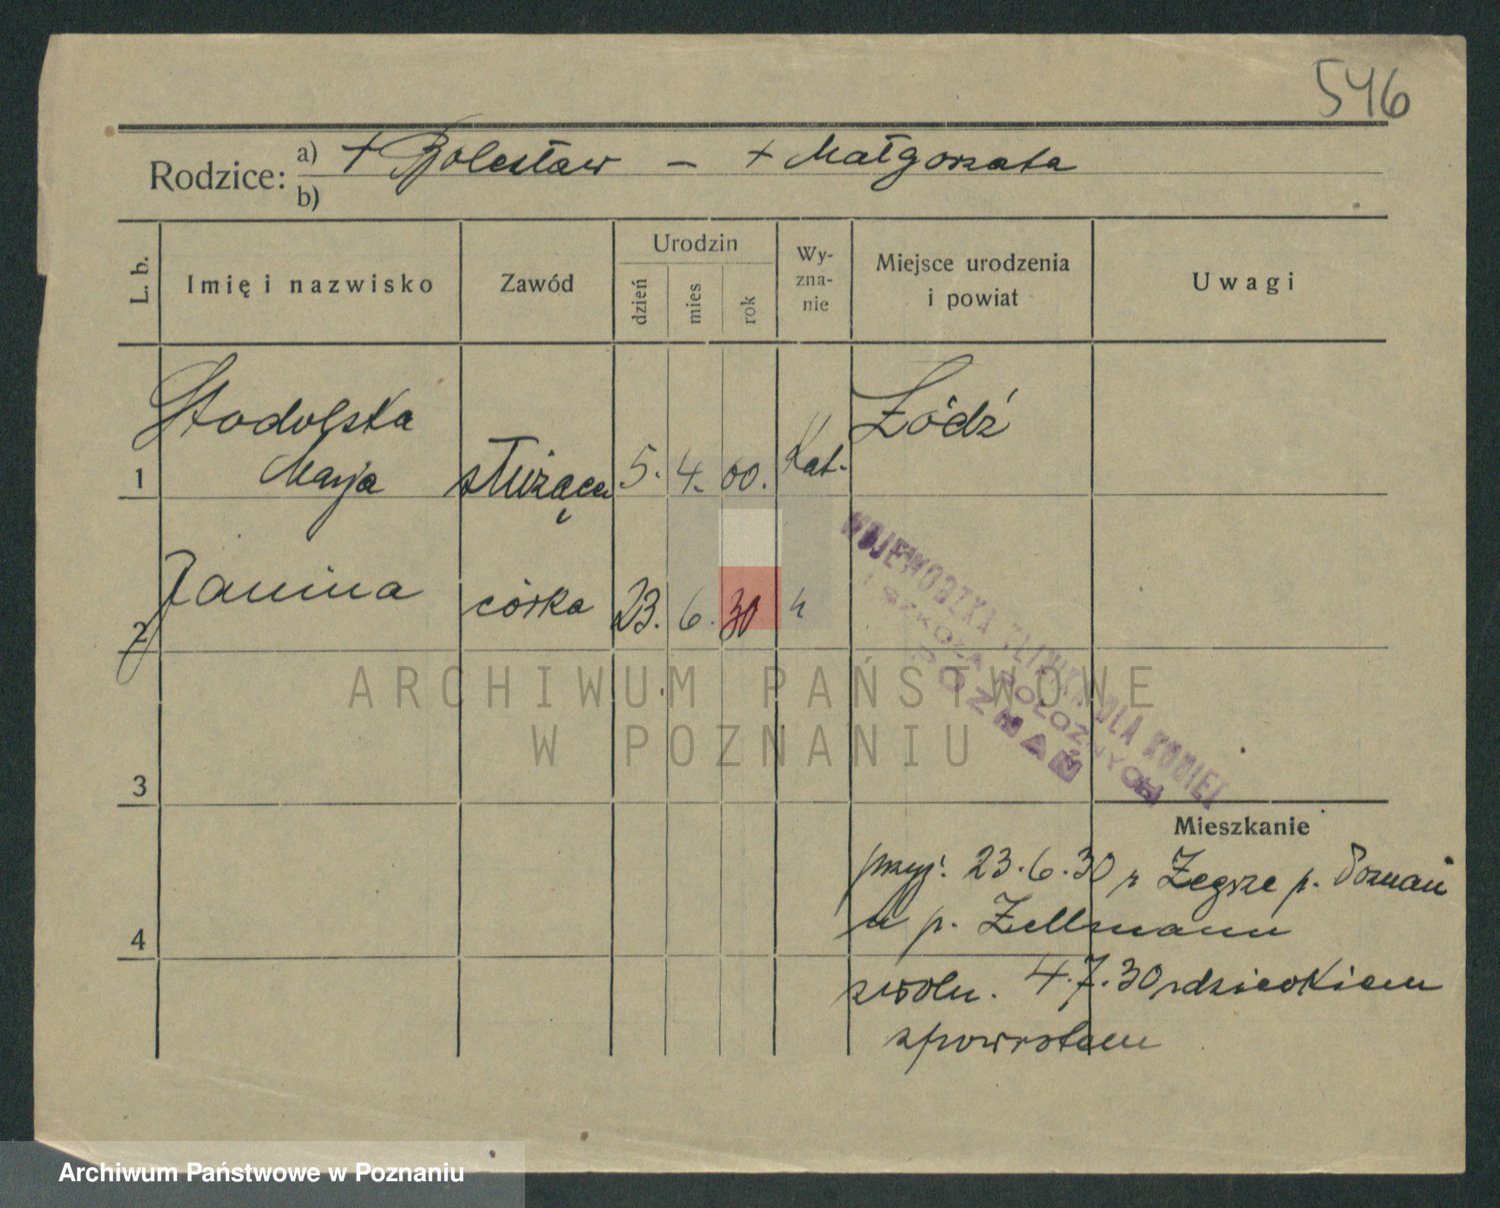 546
Rodzice: a) + Bolesław – + Małgorzata
b)
L. b.
Imię i nazwisko
Zawód
Urodzin
dzień
mies
rok
Wy-
zna-
nie
Miejsce urodzenia
i powiat
Uwagi
Stodolska
Marja
1
służąca
5. 4. 00.
Kat.
Łódź
Janina
2
córka
23. 6. 30
"
WOJEWÓDZKA KLINIKA DLA KOBIET
I SZKOŁA POŁOŻNYCH
POZNAŃ
ARCHIWUM PAŃSTWOWE
W POZNANIU
3
Mieszkanie
przyj. 23.6.30 z Zegrze p. Poznań
u p. Zellmann
4
zwoln. 4.7.30 z dzieckiem
zpowrotem
Archiwum Państwowe w Poznaniu